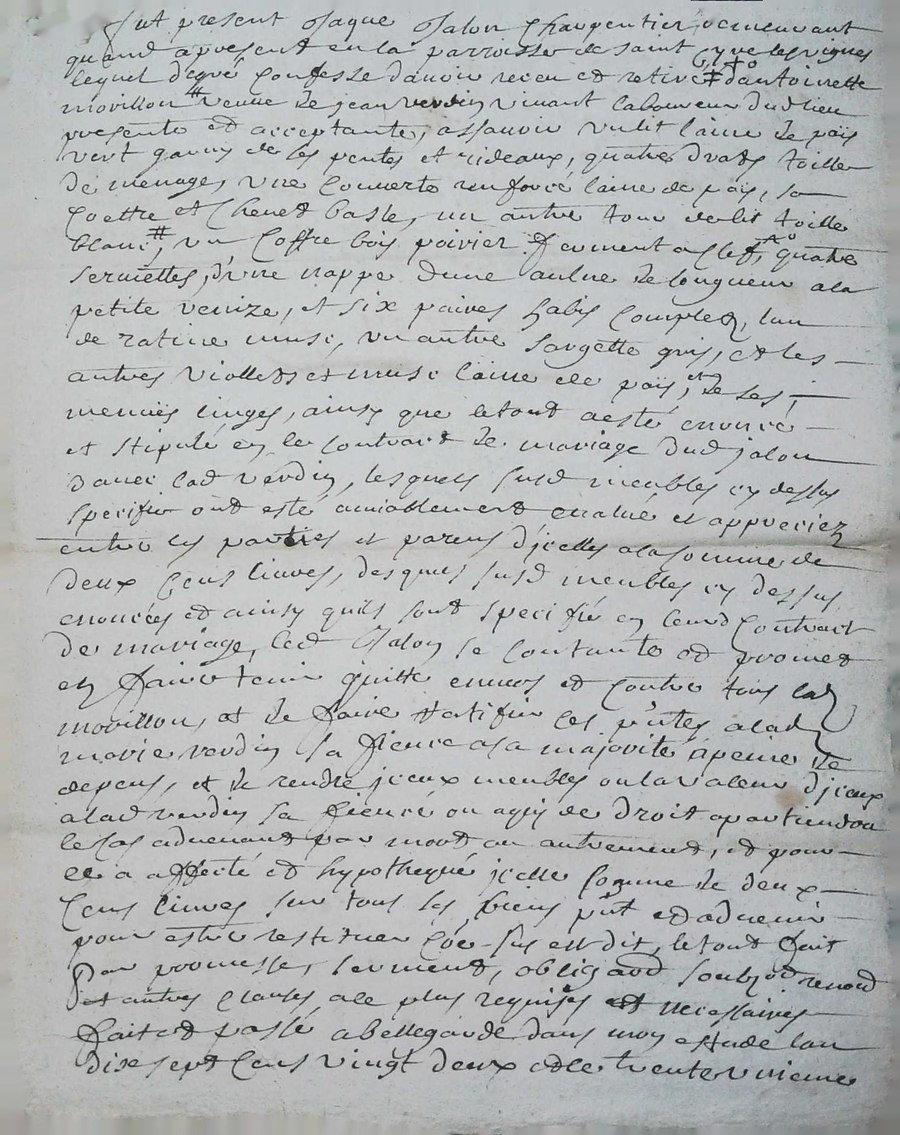 fut present Jsaque Jalon Charpentier demeurant
quand apresent en la parroisse de saint Cyre les vignes
lequel de gré Confesse d'avoir receu et retiré d'antoinette
movillon # veuve de jean verdin vivant laboureur dud lieu
presente et acceptante, assavoir un lit laine de païs
vert garny de ses pentes et rideaux, quatre draps toille
de menage, une Couverte renforcé laine de païs, sa
Coettre et Chevet basle, un autre tour de lit toille
blanc #, un Coffre bois poirier fermant a clef, quatre
serviettes, d'une nappe d'une aulne de longueur a la
petite venize, et six paires habis Complet, l'un
de ratine musc, un autre sargette gris, et les
autres violletts et musc laine de païs, et de ses
menües linges, ainsy que le tout a esté enoncé
et stipulé en le Contract de mariage dud jalon
d'avec lad verdin, lesquels susd meubles cy dessus
specifiez ont esté amiablement evalué et appreciez
entre les parties et parens d'jcelles a la somme de
deux Cens livres, desquels susd meubles cy dessus
enoncées et ainsy qu'ils sont specifié en leurd Contract
de mariage, led Jalon se Contante et promet
en faire tenir quitte envers et Contre tous lad
movillon, et de faire ratifier les pntes a lad
marie verdin sa fiencé a sa majorité a peine de
depens, et de rendre jceux meubles ou la valeur d'jceux
a lad verdin sa fiencé ou a qui de droit apartiendra
le Cas advenant par mort ou autrement, et pour
ce a affecté et hypothequé jcelle somme de deux
Cens livres sur tous ses biens pnt et advenir
pour estre restituer Coe sus est dit, le tout fait
Par promesse, serment, obligaon soubz renon
et autres Clauses a ce plus requises et necessaires
fait et passé a bellegarde dans mon estude l'an
dixsept Cens vingt deux et le trente unieme